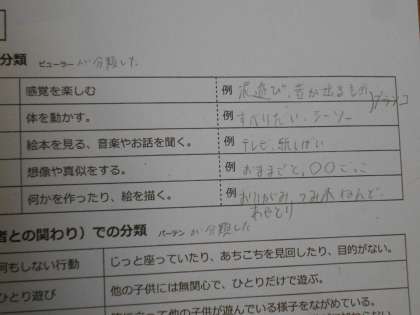 分類 ビューラーが分類した
感覚を楽しむ 例 泥遊び、音が出るもの
ブランコ
体を動かす。 例 すべりだい、シーソー
絵本を見る、音楽やお話を聞く。 例 テレビ、紙しばい
想像や真似をする。 例 おままごと、〇〇ごっこ
何かを作ったり、絵を描く。 例 おりがみ、つみ木 ねんど、
あやとり
者との関わり）での分類 パーテンが分類した
何もしない行動 じっと座っていたり、あちこちを見回したり、目的がない。
ひとり遊び 他の子供には無関心で、ひとりだけで遊ぶ。
他の子供が遊んでいる様子をながめている。